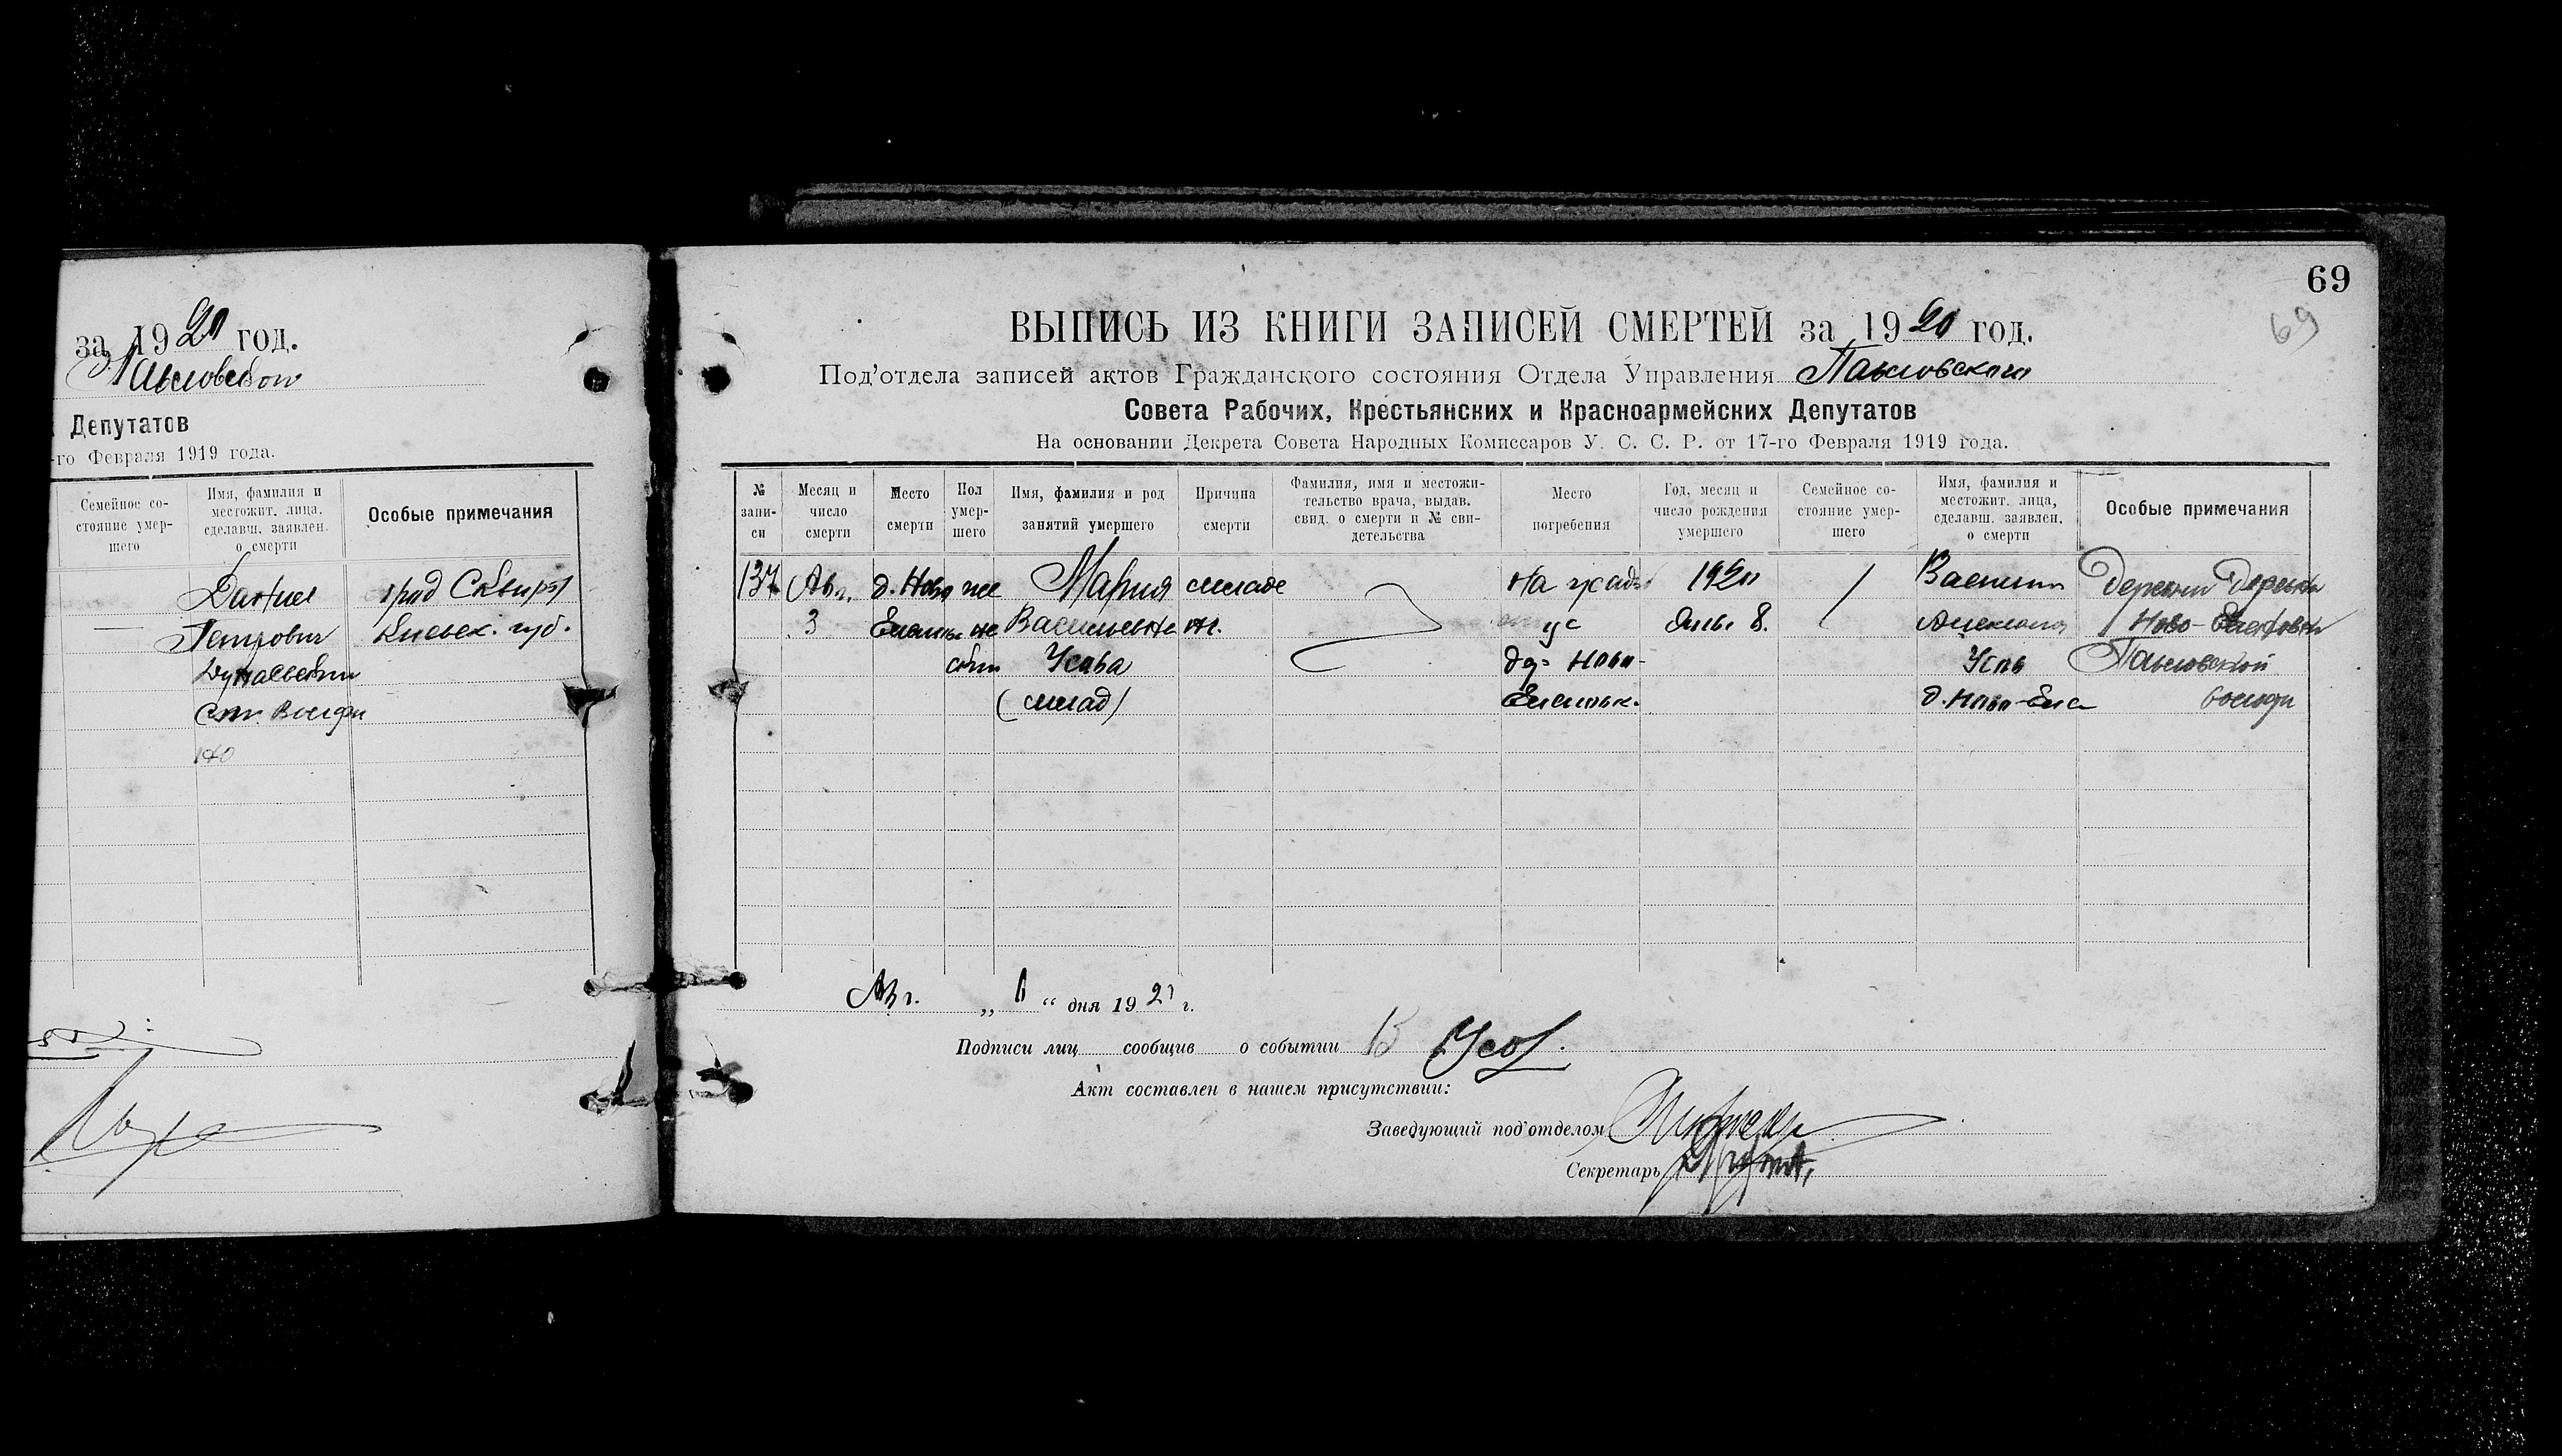 за 1920 год.
Павловском
Депутатов
-го Февраля 1919 года.
Семейное со-
стояние умер-
шего
Имя, фамилия и
местожит. лица,
сделавш. заявлен.
о смерти
Особые примечания
град Сквиры
Петрович
Киевск. губ.
ст. Вольфи
69
69
ВЫПИСЬ ИЗ КНИГИ ЗАПИСЕЙ СМЕРТЕЙ за 1920 год.
Под'отдела записей актов Гражданского состояния Отдела Управления Павловского
Совета Рабочих, Крестьянских и Красноармейских Депутатов
На основании Декрета Совета Народных Комиссаров У. С. С. Р. от 17-го Февраля 1919 года.
№
запи-
си
Месяц и
число
смерти
Место
смерти
Пол
умер-
шего
Имя, фамилия и род
занятий умершего
Причина
смерти
Фамилия, имя и местожи-
тельство врача, выдав.
свид. о смерти и № сви-
детельства
Место
погребения
Год, месяц и
число рождения
умершего
Семейное со-
стояние умер-
шего
Имя, фамилия и
местожит. лица,
сделавш. заявлен.
о смерти
Особые примечания
137 Авг. д. Ново же Мария младе На кладб 1920 Василий Деревни
3 не Васильевна н. Янв. 8. Ново-
Усова Ново- Усов Павловской
(млад) д. Ново-
Авг. „ 6 “ дня 1920 г.
Подписи лиц сообщив о событии В Усов.
Акт составлен в нашем присутствии:
Заведующий под'отделом
Секретарь